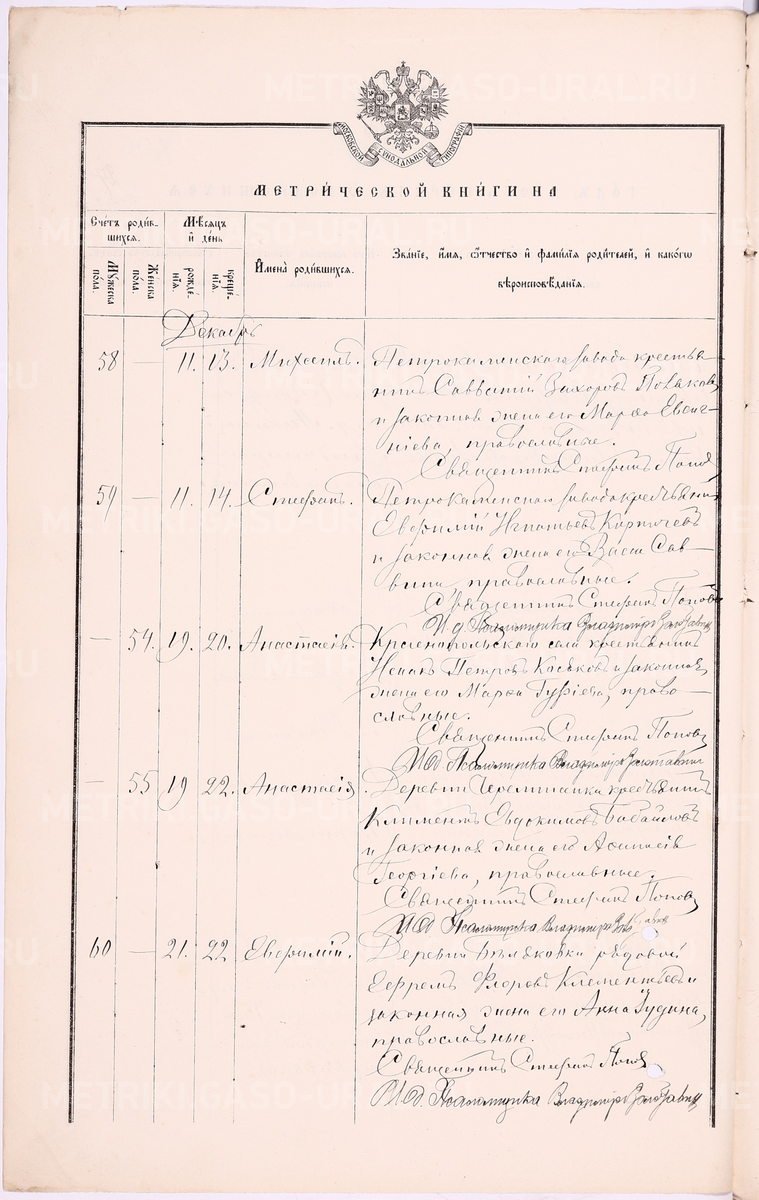 METRIKI.GASO-URAL.RU
МОСКОВСКОЙ СѴНОДАЛЬНОЙ ТИПОГРАФІИ
МЕТРИЧЕСКОЙ КНИГИ НА
Счетъ родившихся.
Мужеска пола.
Женска пола.
Мѣсяцъ и день
рожденія.
крещенія.
Имена родившихся.
Званіе, имя, отчество и фамилія родителей, и какого вѣроисповѣданія.
Декабрь
58 — 11. 13. Михаилъ. Петрокаменскаго завода крестья-
нинъ Савватій Захаровъ
и законная жена его Марѳа Евге-
ніева, православные.
Священникъ Стефанъ Поповъ
59 — 11. 14. Стефанъ. Петрокаменскаго завода крестьянинъ
Евфимій Игнатьевъ
и законная жена его Васса Сав-
вина православные.
Священникъ Стефанъ Поповъ
И д Псаломщика Владимиръ
— 54. 19. 20. Анастасія. Краснопольскаго села крестьянинъ
Петровъ и законная
жена его Марѳа Гурьева, право-
славные.
Священникъ Стефанъ Поповъ
И д Псаломщика Владимиръ
— 55 19 22. Анастасія. Деревни крестьянинъ
Климентъ Евдокимовъ Бабайловъ
и законная жена его Афанасія
Георгіева, православные.
Священникъ Стефанъ Поповъ
И д Псаломщика Владимиръ
60 — 21. 22 Евфимій. Деревни Бѣляковки рядовой
Ефремъ Флоровъ Клементьевъ и
законная жена его Анна
православные.
Священникъ Стефанъ Поповъ
И д. Псаломщика Владимиръ